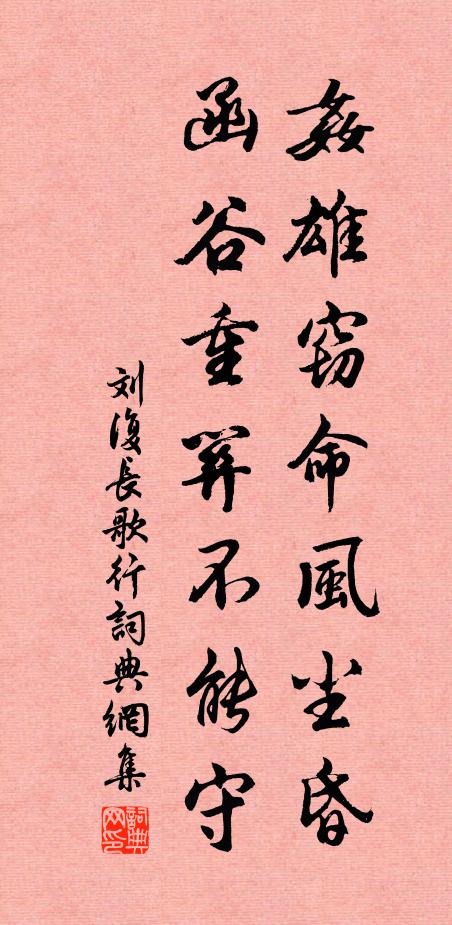 姦雄窃命風尘昏
函谷重關不能守
刘復長歌行詞典網集
詞典网印